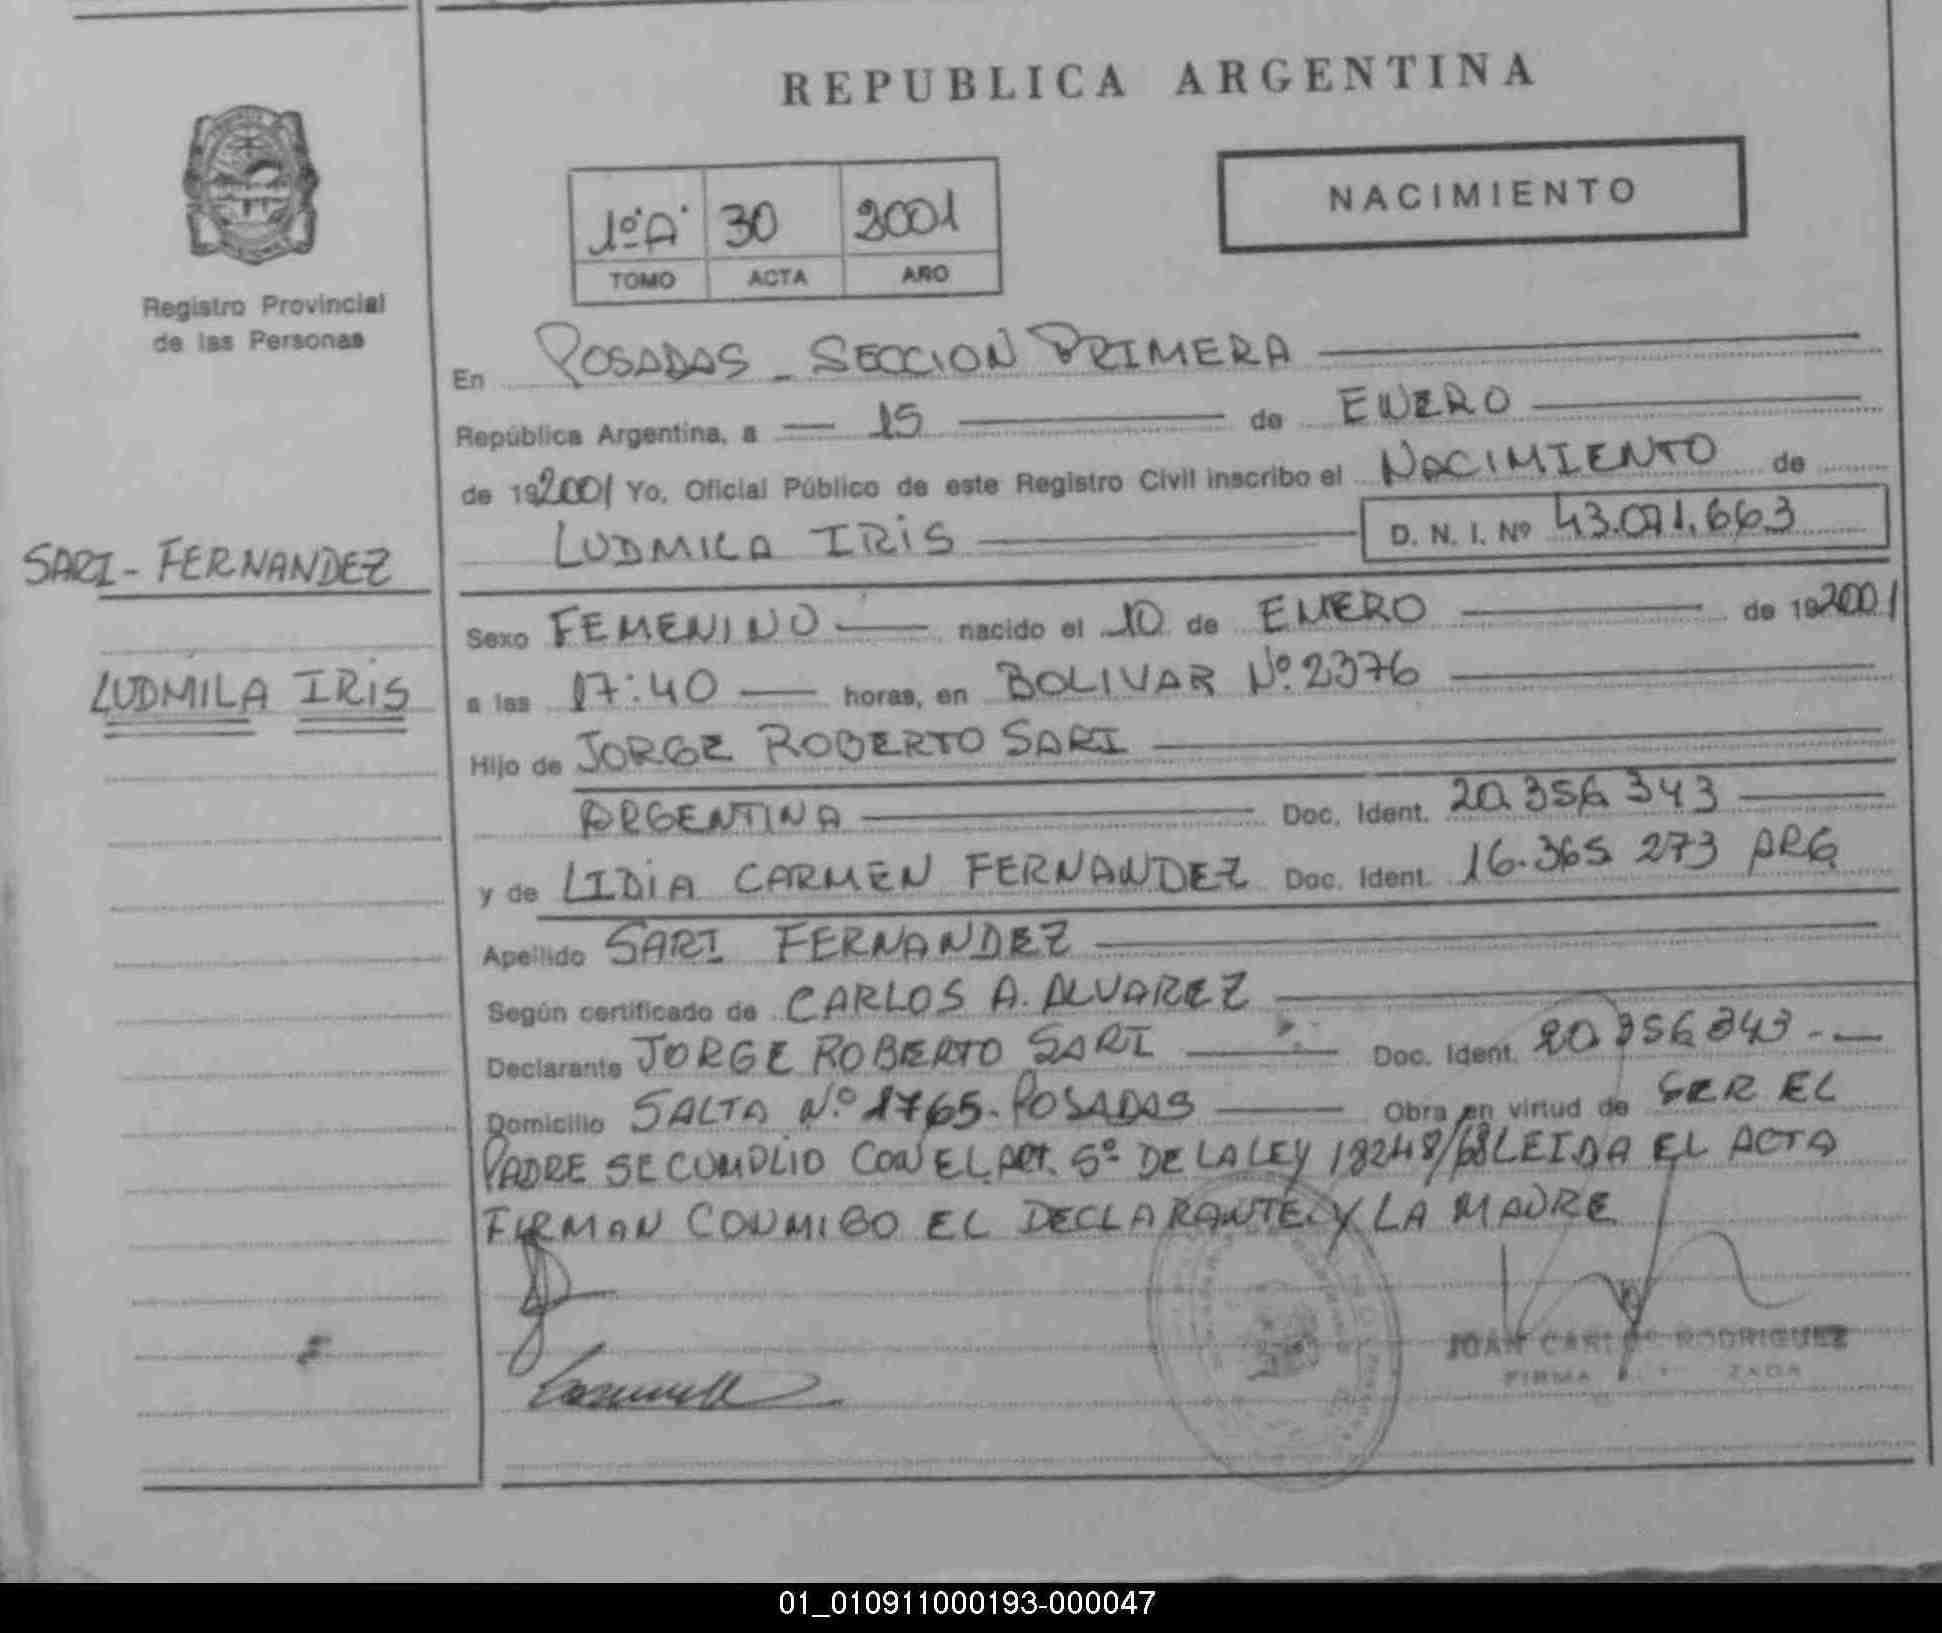 REPUBLICA ARGENTINA
NACIMIENTO
1º "A" 30 2001
TOMO ACTA AÑO
Registro Provincial
de las Personas
SARI - FERNANDEZ
LUDMILA IRIS
En POSADAS - SECCION PRIMERA
República Argentina, a 15 de ENERO
de 192001 Yo, Oficial Público de este Registro Civil inscribo el NACIMIENTO de
LUDMILA IRIS D. N. I. Nº 43.071.663
Sexo FEMENINO nacido el 10 de ENERO de 192001
a las 17:40 horas, en BOLIVAR Nº 2376
Hijo de JORGE ROBERTO SARI
ARGENTINA Doc. Ident. 20.356.343
y de LIDIA CARMEN FERNANDEZ Doc. Ident. 16.365 273 ARG
Apellido SARI FERNANDEZ
Según certificado de CARLOS A. ALVAREZ
Declarante JORGE ROBERTO SARI Doc. Ident. 20.356.343.-
Domicilio SALTA Nº 1765. POSADAS Obra en virtud de SER EL
PADRE SE CUMPLIO CON EL ART. 5º DE LA LEY 18248/68 LEIDA EL ACTA
FIRMAN CONMIGO EL DECLARANTE Y LA MADRE
JUAN CARLOS RODRIGUEZ
FIRMA
01_010911000193-000047